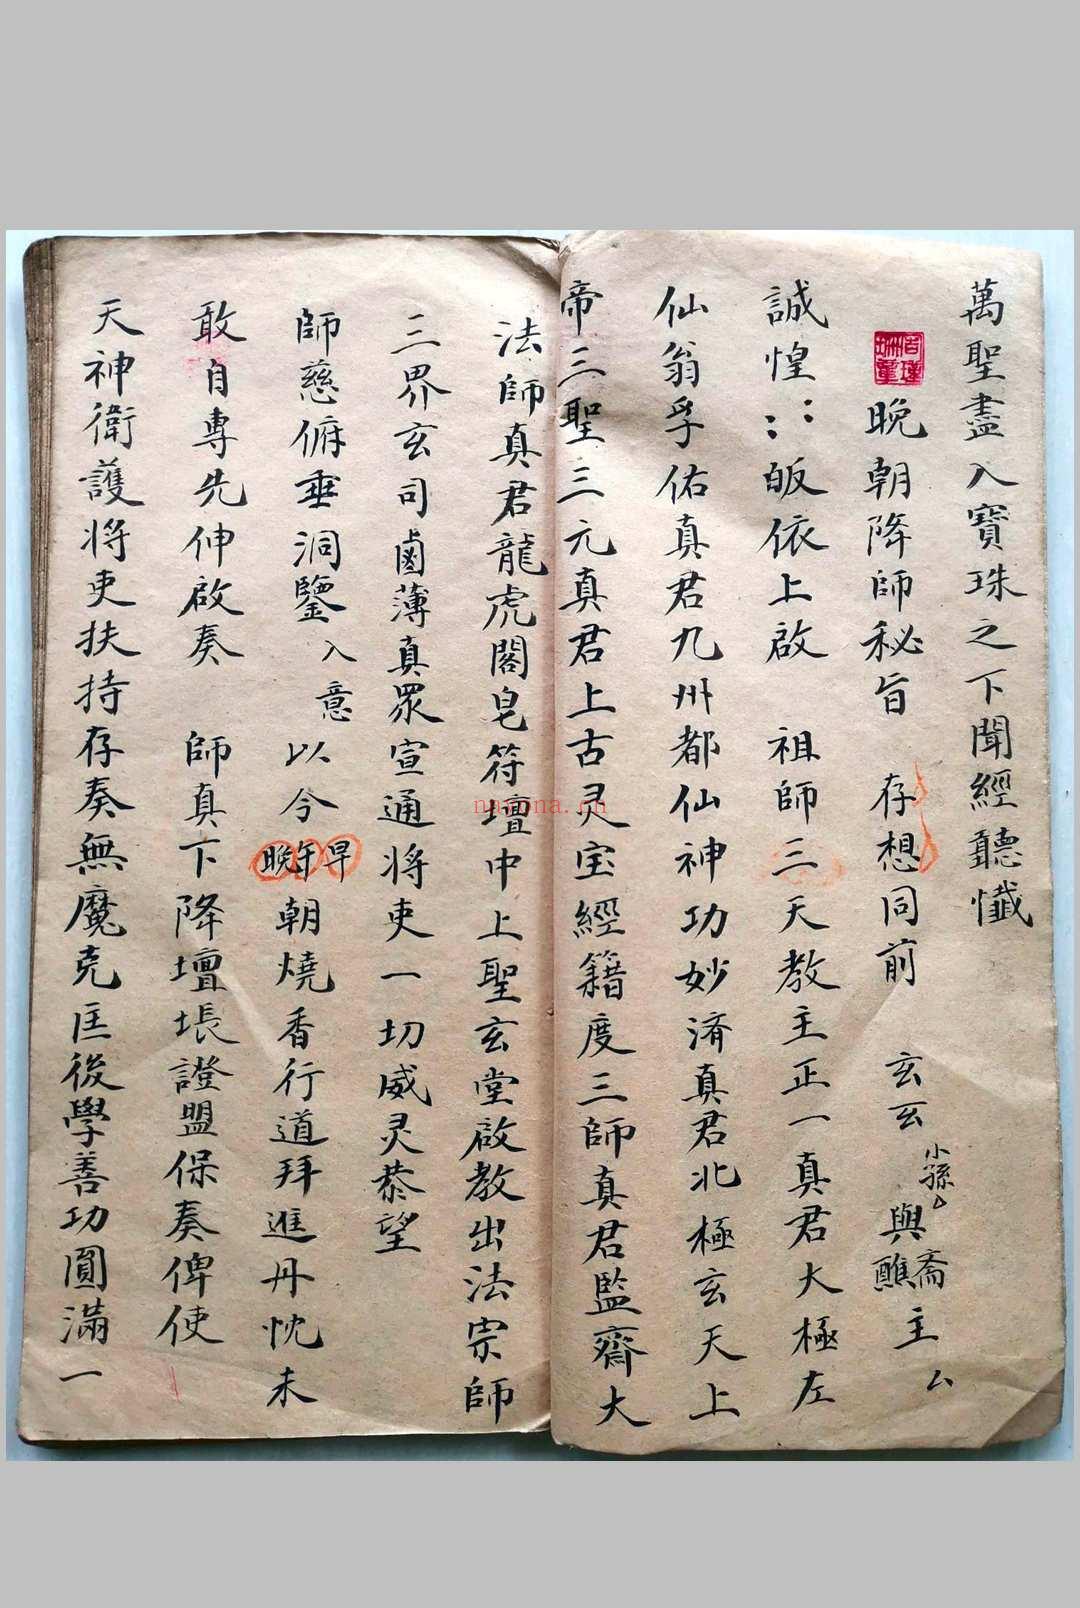 萬聖盡入寶珠之下聞經聽懺
晚朝降師秘旨 存想同前 玄玄 小孫厶 與齋醮主厶
誠惶：：皈依上啟 祖師三天教主正一真君大極左
仙翁孚佑真君九州都仙神功妙濟真君北極玄天上
帝三聖三元真君上古灵宝經籍度三師真君監齋大
法師真君龍虎閣皂符壇中上聖玄堂啟教出法宗師
三界玄司鹵薄真眾宣通將吏一切威灵恭望
師慈俯垂洞鑒入意以今早午晚朝燒香行道拜進丹忱未
敢自專先伸啟奏 師真下降壇墆證盟保奏俾使
天神衛護將吏扶持存奏無魔克匡後學善功圓滿一